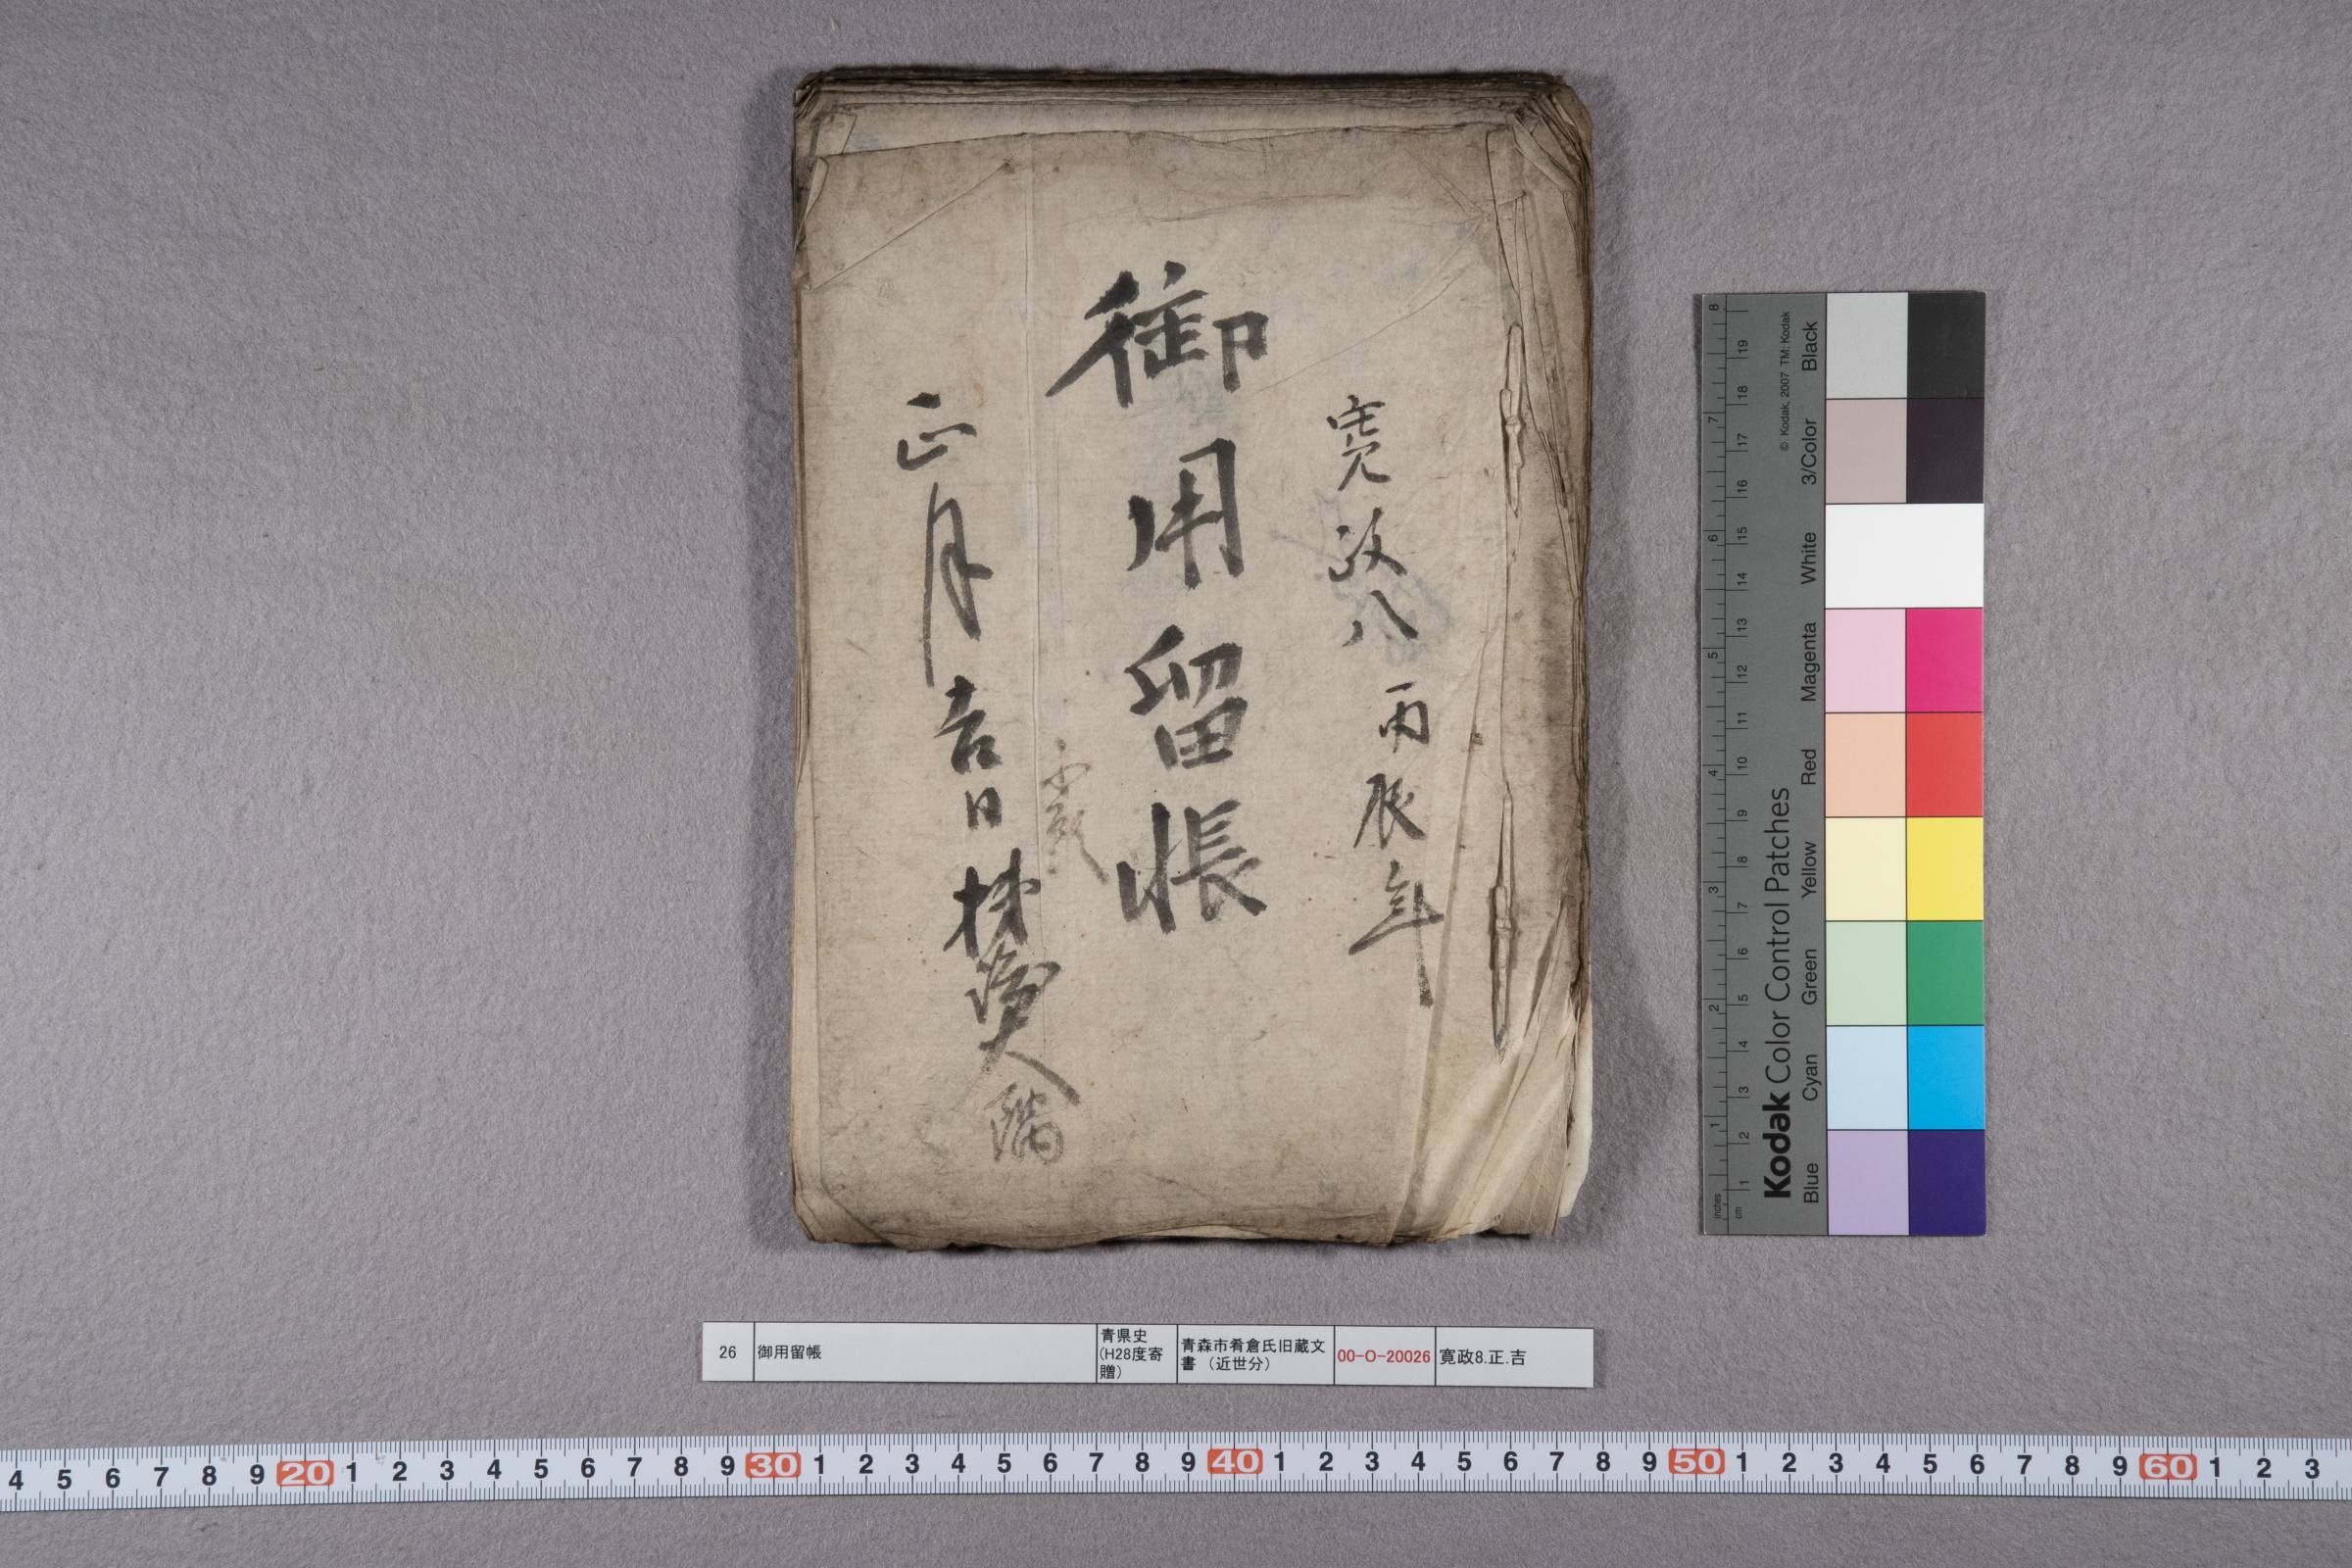 寛政八丙辰年
御用留帳
正月吉日
26
御用留帳
青県史
(H28度寄
贈)
青森市肴倉氏旧蔵文
書 (近世分)
00-O-20026
寛政8.正.吉
Kodak Color Control Patches
© Kodak, 2007 TM: Kodak
Blue Cyan Green Yellow Red Magenta White 3/Color Black
inches 1 2 3 4 5 6 7 8
cm 1 2 3 4 5 6 7 8 9 10 11 12 13 14 15 16 17 18 19
4 5 6 7 8 9 20 1 2 3 4 5 6 7 8 9 30 1 2 3 4 5 6 7 8 9 40 1 2 3 4 5 6 7 8 9 50 1 2 3 4 5 6 7 8 9 60 1 2 3